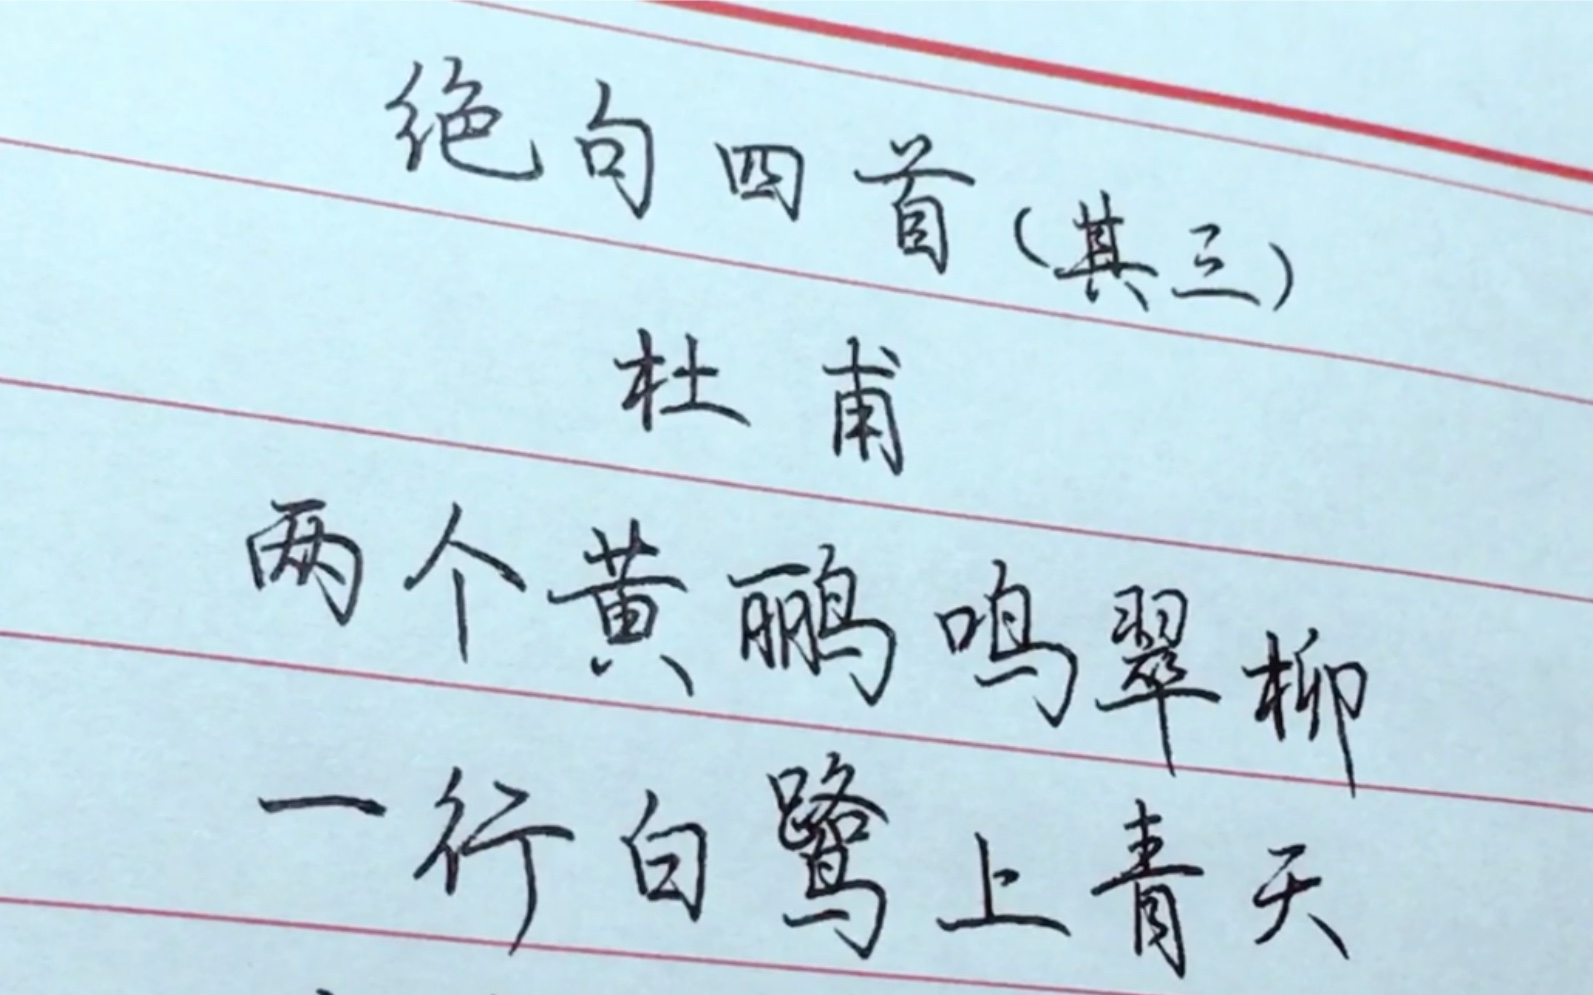 绝句四首(其三)
杜甫
两个黄鹂鸣翠柳
一行白鹭上青天